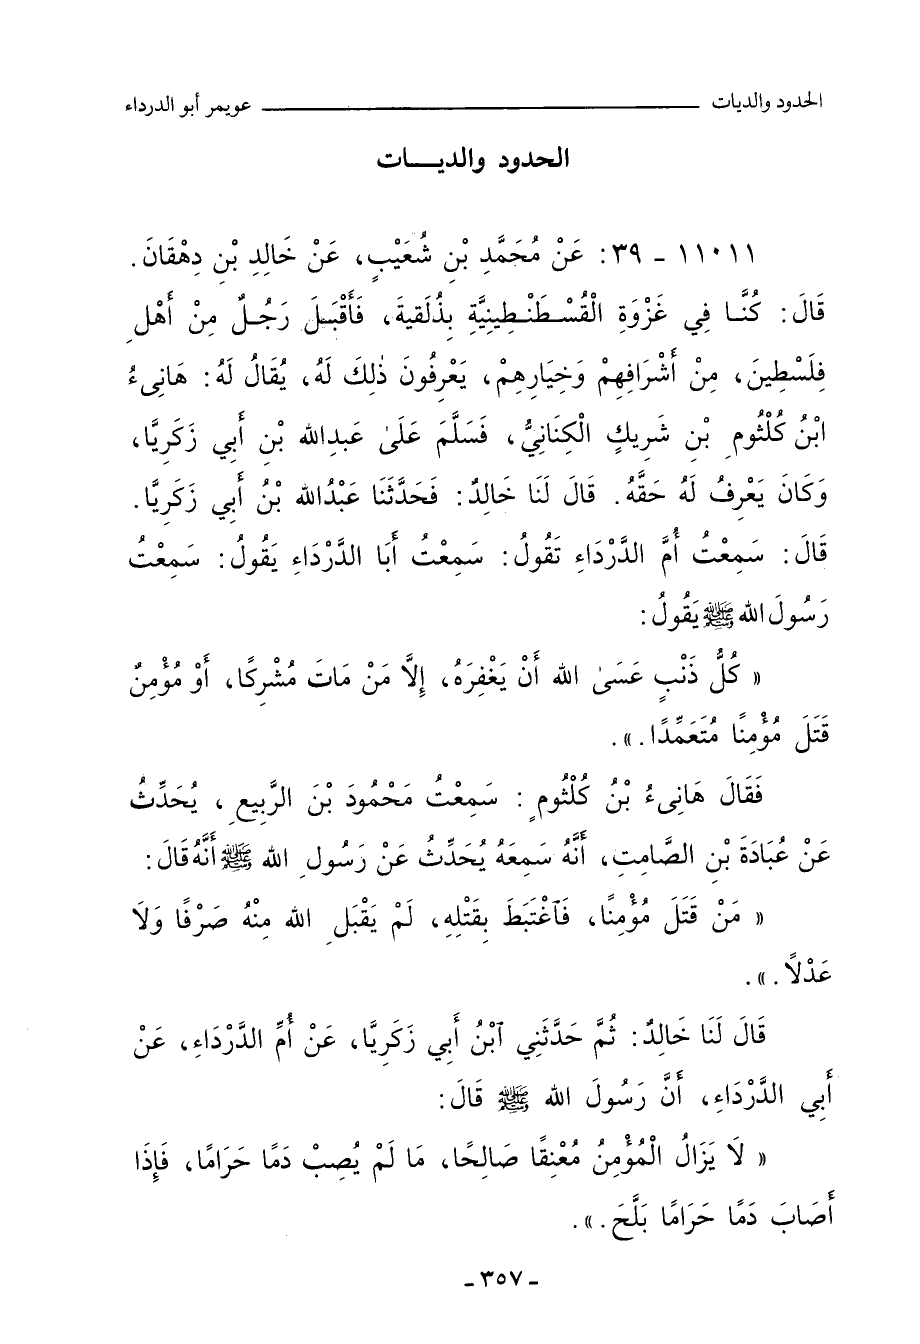 الحدود والديات ــــــــــــــــــــــــــــ عويمر أبو الدرداء
الحدود والديـــات
١١٠١١ - ٣٩: عَنْ مُحَمَّدِ بْنِ شُعَيْبٍ، عَنْ خَالِدِ بْنِ دِهْقَانَ.
قَالَ: كُنَّا فِي غَزْوَةِ الْقُسْطَنْطِينِيَّةِ بِذُلَقيةَ، فَأَقْبَلَ رَجُلٌ مِنْ أَهْلِ
فِلَسْطِينَ، مِنْ أَشْرَافِهِمْ وَخِيَارِهِمْ، يَعْرِفُونَ ذٰلِكَ لَهُ، يُقَالُ لَهُ: هَانِىءُ
ابْنُ كُلْثُومِ بْنِ شَرِيكٍ الْكِنَانِيُّ، فَسَلَّمَ عَلَىٰ عَبدِالله بْنِ أَبي زَكَرِيَّا،
وَكَانَ يَعْرِفُ لَهُ حَقَّهُ. قَالَ لَنَا خَالِدٌ: فَحَدَّثَنَا عَبْدُالله بْنُ أَبي زَكَرِيَّا.
قَالَ: سَمِعْتُ أُمَّ الدَّرْدَاءِ تَقُولُ: سَمِعْتُ أَبَا الدَّرْدَاءِ يَقُولُ: سَمِعْتُ
رَسُولَ الله ﷺ يَقُولُ:
« كُلُّ ذَنْبٍ عَسَىٰ الله أَنْ يَغْفِرَهُ، إِلاَّ مَنْ مَاتَ مُشْرِكًا، أَوْ مُؤْمِنٌ
قَتَلَ مُؤْمِنًا مُتَعَمِّدًا.».
فَقَالَ هَانِىءُ بْنُ كُلْثُومٍ : سَمِعْتُ مَحْمُودَ بْنَ الرَّبِيعِ ، يُحَدِّثُ
عَنْ عُبَادَةَ بْنِ الصَّامِتِ، أَنَّهُ سَمِعَهُ يُحَدِّثُ عَنْ رَسُولِ الله ﷺ أَنَّهُ قَالَ:
« مَنْ قَتَلَ مُؤْمِنًا، فَٱغْتَبَطَ بِقَتْلِهِ، لَمْ يَقْبَلِ الله مِنْهُ صَرْفًا وَلاَ
عَدْلاً.».
قَالَ لَنَا خَالِدٌ: ثُمَّ حَدَّثَنِي ٱبْنُ أَبي زَكَرِيَّا، عَنْ أُمِّ الدَّرْدَاءِ، عَنْ
أَبِي الدَّرْدَاءِ، أَنَّ رَسُولَ الله ﷺ قَالَ:
« لاَ يَزَالُ الْمُؤْمِنُ مُعْنِقًا صَالِحًا، مَا لَمْ يُصِبْ دَمًا حَرَامًا، فَإِذَا
أَصَابَ دَمًا حَرَامًا بَلَّحَ.».
- ٣٥٧ -